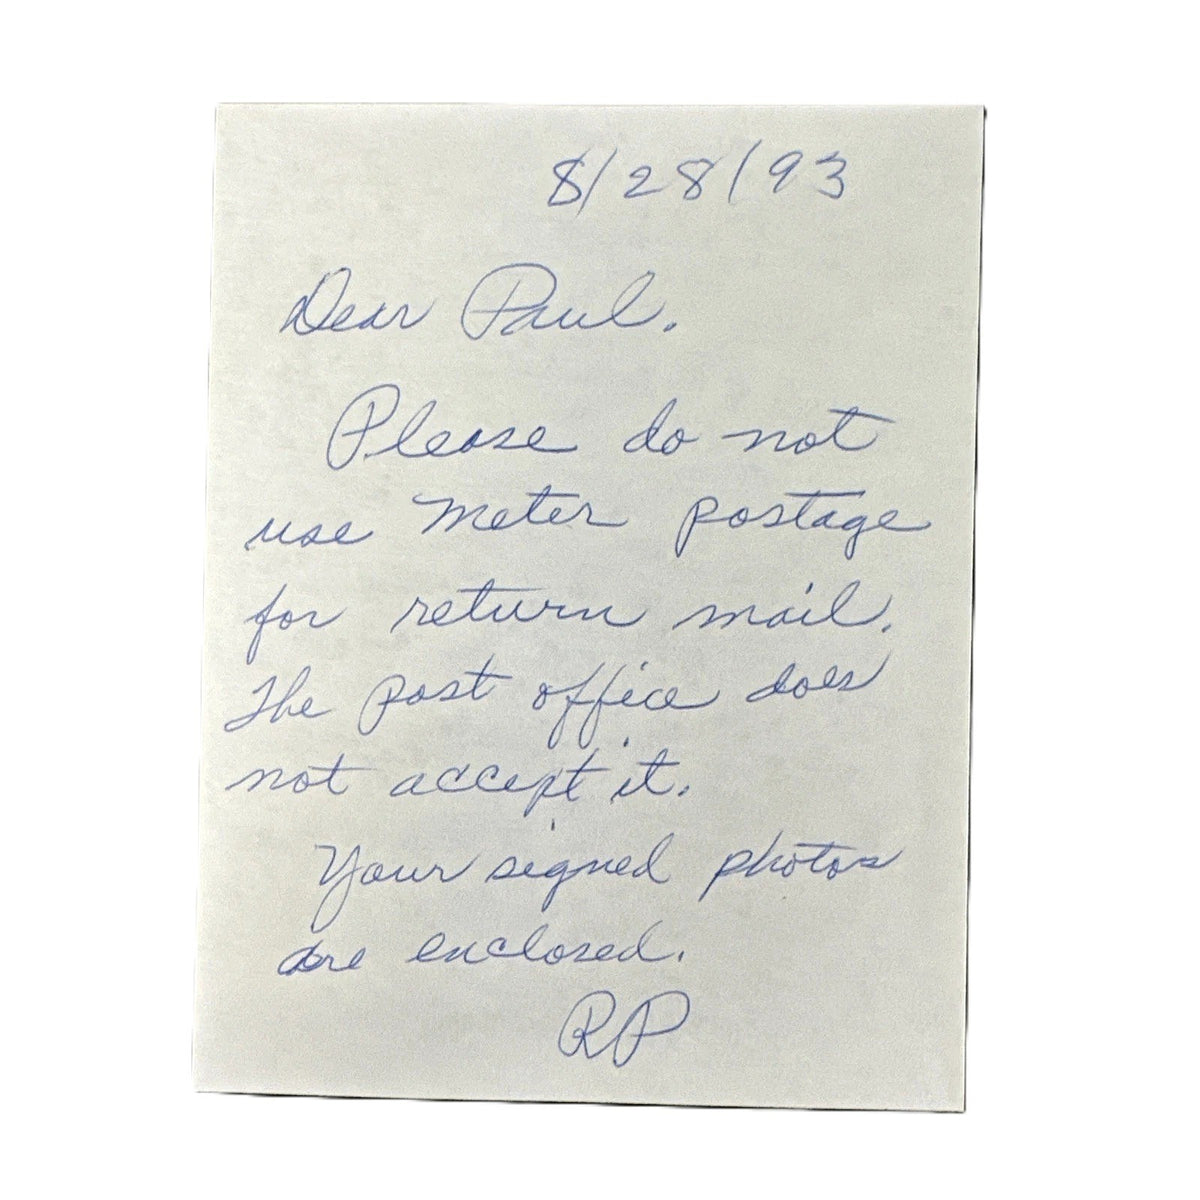 8/28/93
Dear Paul.
Please do not
use meter postage
for return mail.
The post office does
not accept it.
Your signed photos
are enclosed.
RP